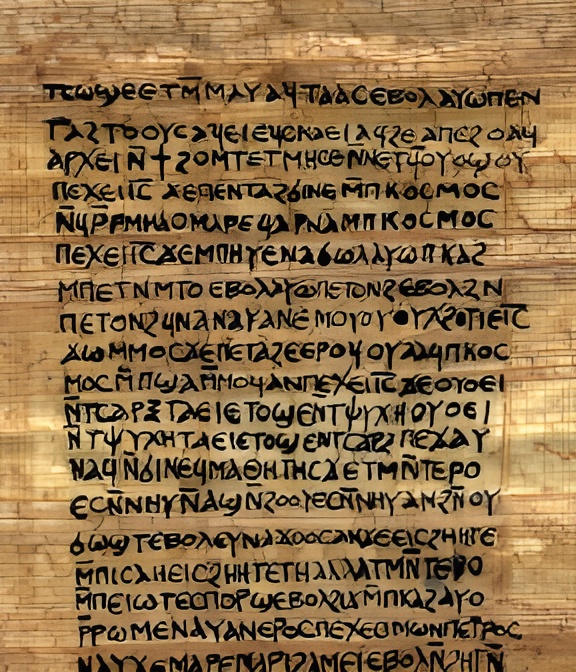 ⲡⲥⲱϣⲉⲉⲧⲙ̄ⲙⲁⲩⲁϥⲧⲁⲁⲥⲉⲃⲟⲗⲁⲩⲱⲡⲉⲛ
ⲧⲁϩⲧⲟⲟⲩⲥⲁϥⲉⲓⲉϥⲥⲕⲁⲉⲓⲁϥϩⲉⲁⲡⲉϩⲟⲁϥ
ⲁⲣⲭⲉⲓⲛ̄ϯϩⲟⲙⲧⲉⲧⲙⲏⲥⲉⲛ̄ⲛⲉⲧϥⲟⲩⲟϣⲟⲩ
ⲡⲉϫⲉⲓ̅ⲥ̅ϫⲉⲡⲉⲛⲧⲁϩϭⲓⲛⲉⲙ̄ⲡⲕⲟⲥⲙⲟⲥ
ⲛ̄ϥⲣ̄ⲣⲙⲙⲁⲟⲙⲁⲣⲉϥⲁⲣⲛⲁⲙⲡⲕⲟⲥⲙⲟⲥ
ⲡⲉϫⲉⲓ̅ⲥ̅ϫⲉⲙⲡⲏⲩⲉⲛⲁϭⲱⲗⲁⲩⲱⲡⲕⲁϩ
ⲙⲡⲉⲧⲛⲙⲧⲟⲉⲃⲟⲗⲁⲩⲱⲡⲉⲧⲟⲛϩⲉⲃⲟⲗϩⲛ
ⲡⲉⲧⲟⲛϩϥⲛⲁⲛⲁⲩⲁⲛⲉⲙⲟⲩⲟⲩⲭϩⲟⲧⲓⲉⲓ̅ⲥ̅
ϫⲱⲙⲙⲟⲥϫⲉⲡⲉⲧⲁϩⲉⲉⲣⲟϥⲟⲩⲁⲁϥⲡⲕⲟⲥ
ⲙⲟⲥⲙ̄ⲡϣⲁⲙ̄ⲙⲟϥⲁⲛⲡⲉϫⲉⲓ̅ⲥ̅ϫⲉⲟⲩⲟⲉⲓ
ⲛ̄ⲧⲥⲁⲣⲝⲧⲁⲉⲓⲉⲧⲟϣⲉⲛ̄ⲧⲯⲩⲭⲏⲟⲩⲟⲉⲓ
ⲛ̄ⲧⲯⲩⲭⲏⲧⲁⲉⲓⲉⲧⲟϣⲉⲛⲧⲥⲁⲣⲝⲡⲉϫⲁⲩ
ⲛⲁϥⲛ̄ϭⲓⲛⲉϥⲙⲁⲑⲏⲧⲏⲥϫⲉⲧⲙⲛ̄ⲧⲉⲣⲟ
ⲉⲥⲛ̄ⲛⲏⲩⲛ̄ⲁϣⲛ̄ϩⲟⲟⲩⲉⲥⲛ̄ⲛⲏⲩⲁⲛϩⲛ̄ⲟⲩ
ϭⲱϣⲧⲉⲃⲟⲗⲉⲩⲛⲁϫⲟⲟⲥⲁⲛϫⲉⲉⲓⲥϩⲏⲏⲧⲉ
ⲙ̄ⲡⲓⲥⲁⲏⲉⲓⲥϩⲏⲏⲧⲉⲧⲏⲁⲗⲗⲁⲧⲙⲛ̄ⲧⲉⲣⲟ
ⲙ̄ⲡⲉⲓⲱⲧⲉⲥⲡⲟⲣϣⲉⲃⲟⲗϩⲓϫⲙ̄ⲡⲕⲁϩⲁⲩⲱ
ⲣ̄ⲣⲱⲙⲉⲛⲁⲩⲁⲛⲉⲣⲟⲥⲡⲉϫⲉⲥⲓⲙⲱⲛⲡⲉⲧⲣⲟⲥ
ⲛⲁⲩϫⲉⲙⲁⲣⲉⲙⲁⲣⲓϩⲁⲙⲉⲓⲉⲃⲟⲗⲛ̄ϩⲏⲧⲛ̄